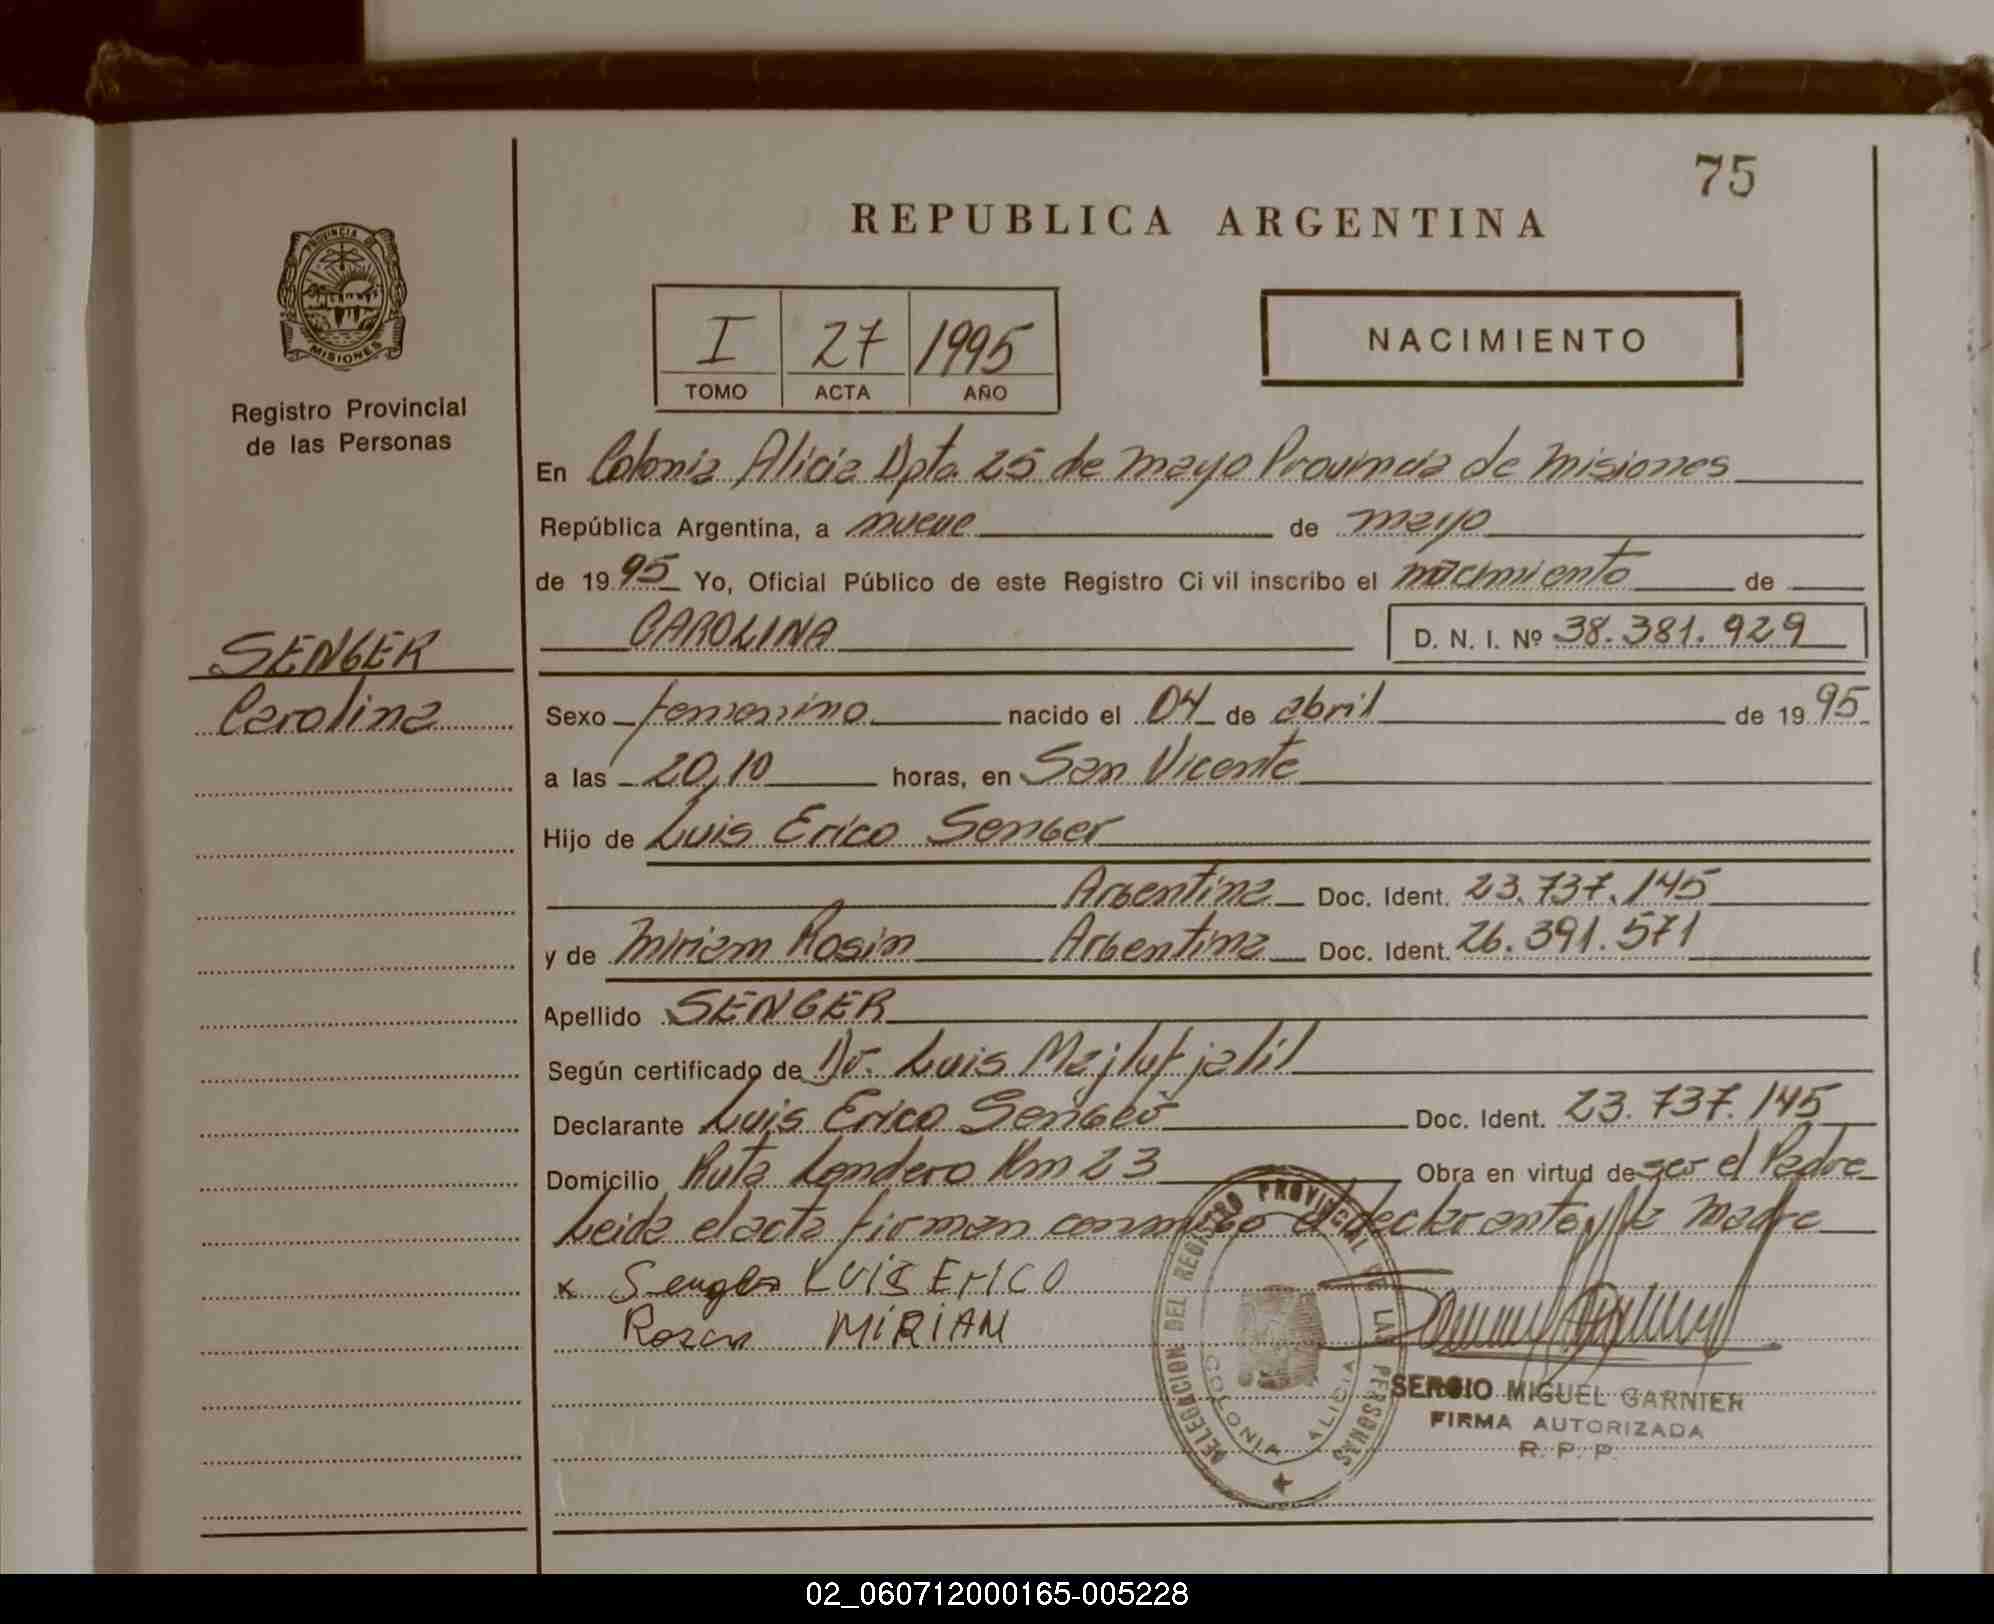 75
REPUBLICA ARGENTINA
PROVINCIA DE
MISIONES
Registro Provincial
de las Personas
I 27 1995
TOMO ACTA AÑO
NACIMIENTO
En Colonia Alicia Dpto. 25 de mayo Provincia de Misiones
República Argentina, a nueve de mayo
de 1995 Yo, Oficial Público de este Registro Civil inscribo el nacimiento de
CAROLINA D. N. I. Nº 38.381.929
SENGER
Carolina
Sexo femenino nacido el 04 de abril de 1995
a las 20,10 horas, en San Vicente
Hijo de Luis Erico Senger
Argentina Doc. Ident. 23.737.145
y de Miriam Rosin Argentina Doc. Ident. 26.391.571
Apellido SENGER
Según certificado de Dr. Luis Majluf jalil
Declarante Luis Erico Senger Doc. Ident. 23.737.145
Domicilio Ruta Londero Km 23 Obra en virtud de ser el Padre
Leida el acta firman conmigo el declarante y la madre
x Senger LUIS ERICO
MIRIAN
DELEGACION DEL REGISTRO PROVINCIAL DE LAS PERSONAS
COLONIA ALICIA
SERGIO MIGUEL GARNIER
FIRMA AUTORIZADA
R. P. P.
02_060712000165-005228